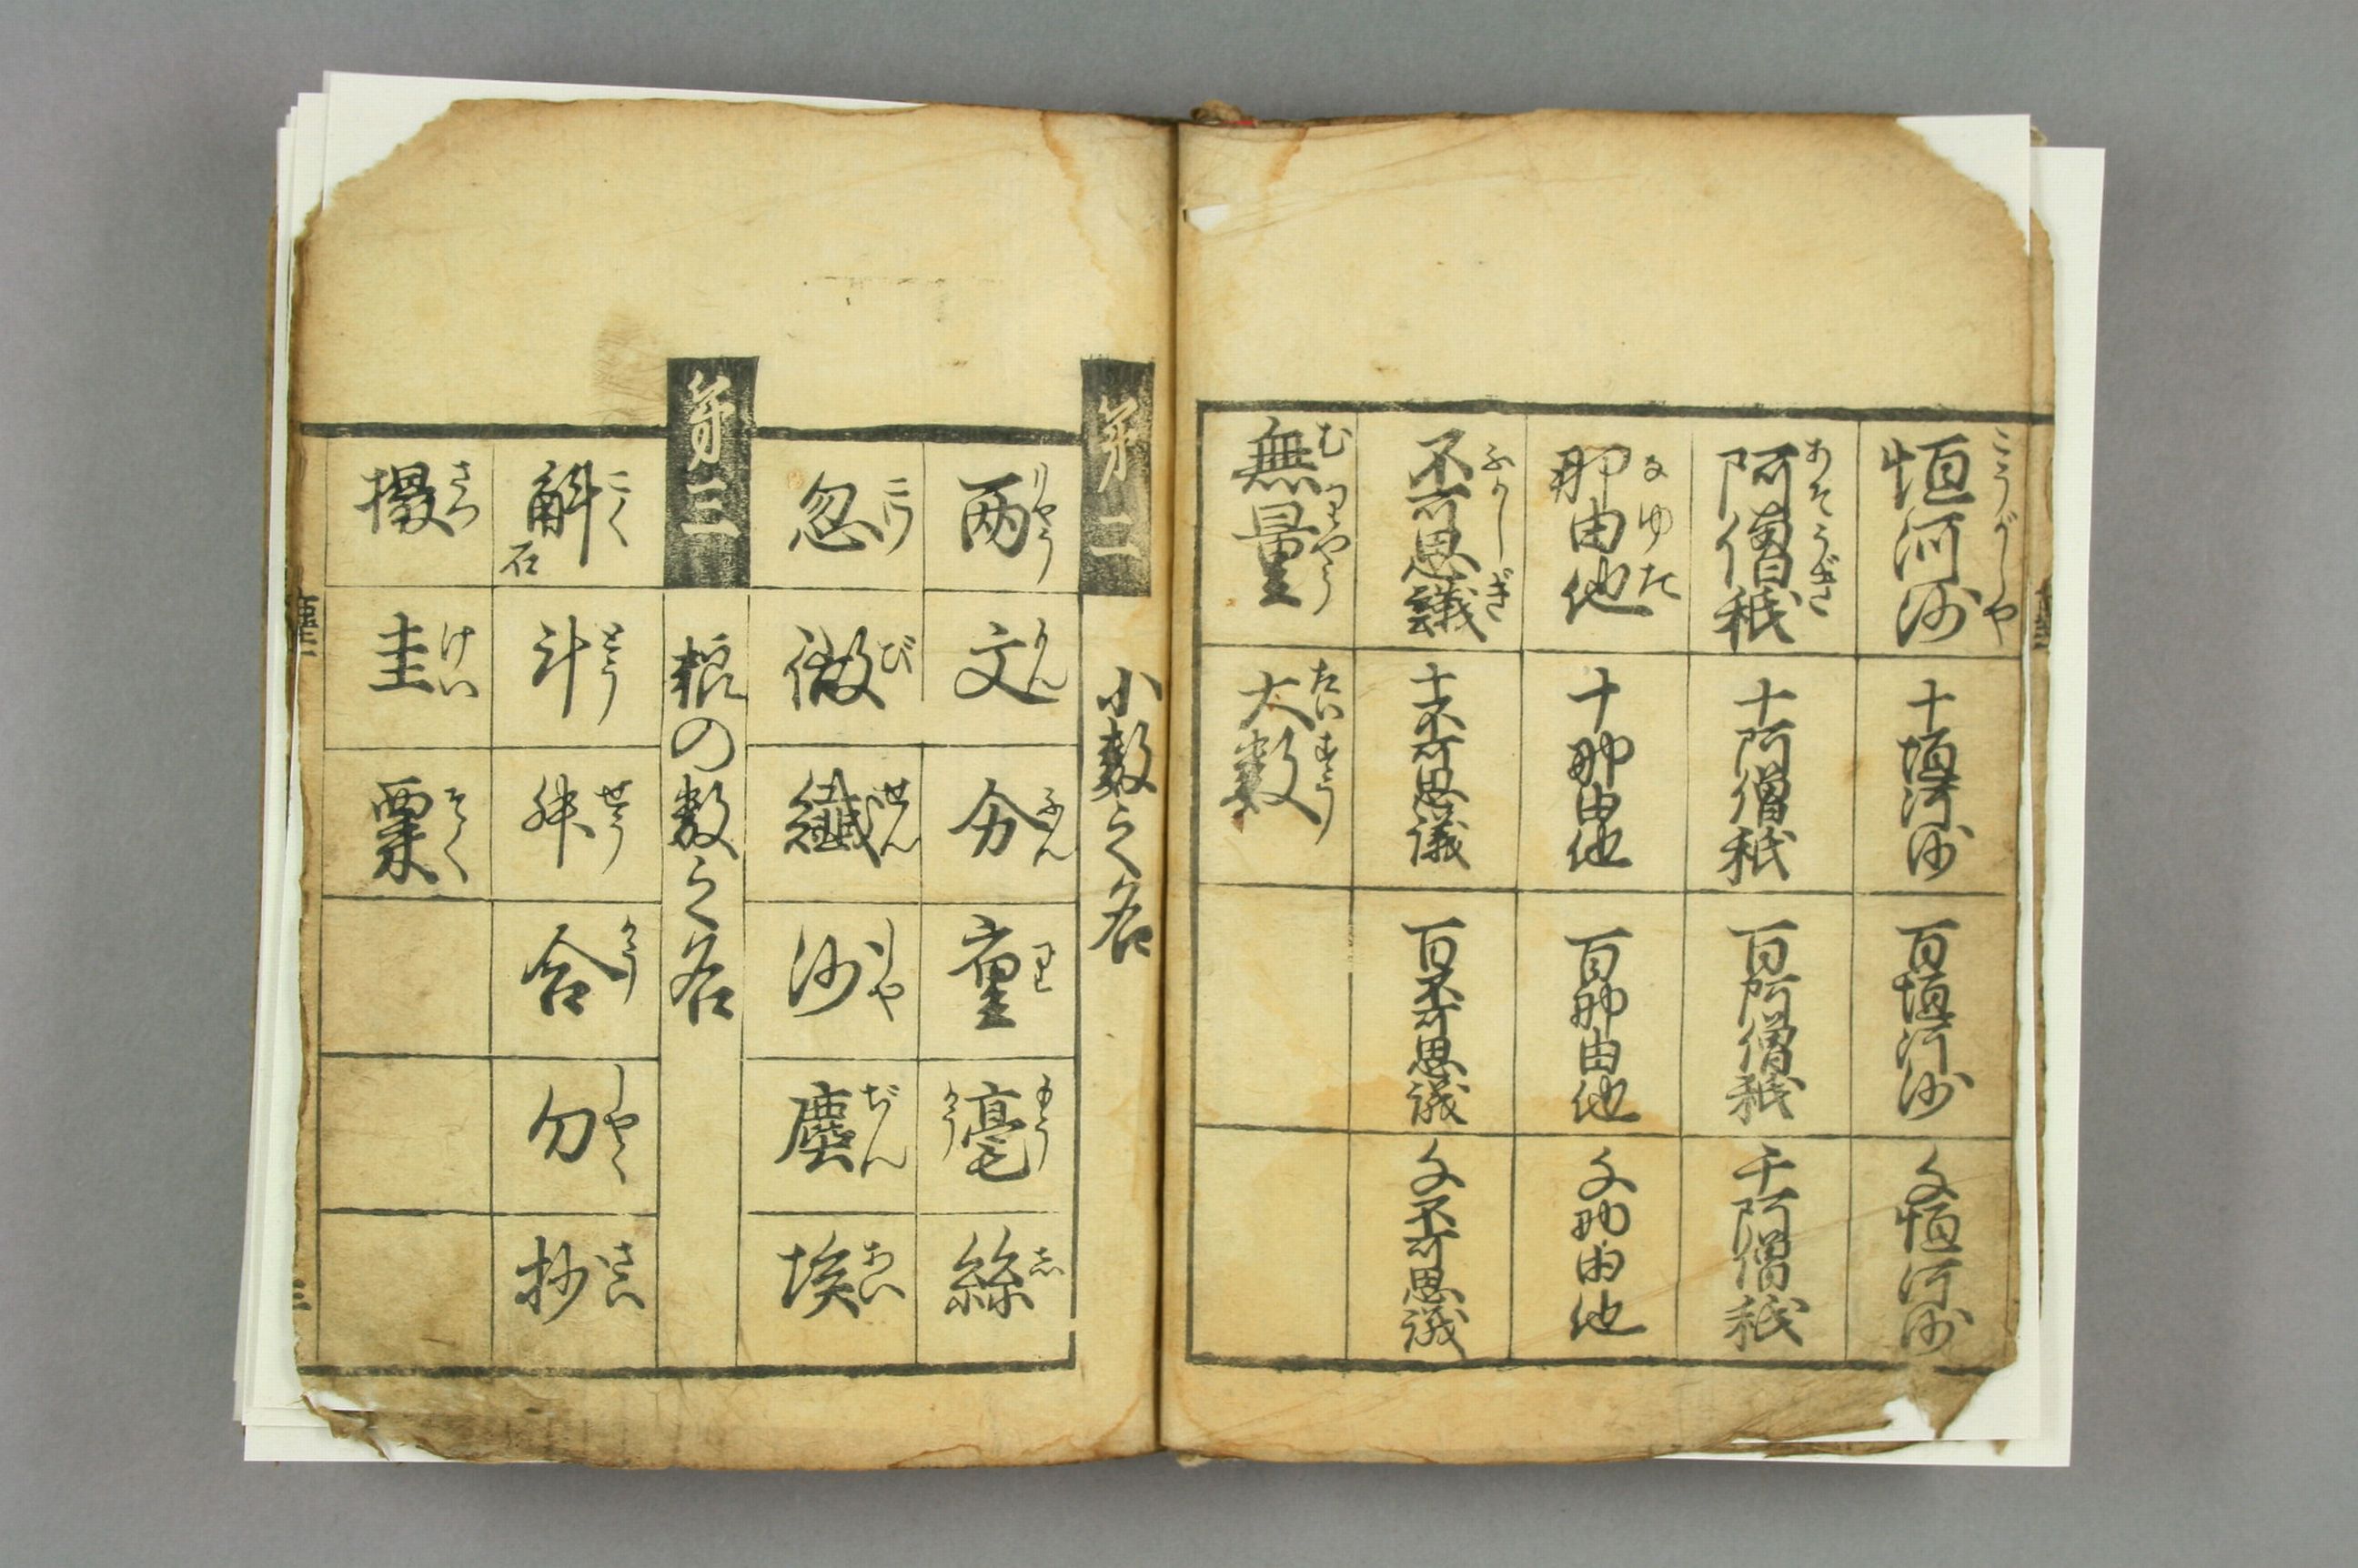 恒河沙 十恒河沙 百恒河沙 千恒河沙
こうがしや
阿僧祇 十阿僧祇 百阿僧祇 千阿僧祇
あそうぎ
那由他 十那由他 百那由他 千那由他
なゆた
不可思議 十不可思議 百不可思議 千不可思議
ふかしぎ
無量 大数
むりやう たいすう
第二 小数之名
両 文 分 厘 毫 絲
りやう もん ふん りん もう がう し
忽 微 纖 沙 塵 埃
こつ び せん しや ぢん あい
第三 粮の数之名
斛 石 斗 升 合 勺 抄
こく とう せう がう しやく さい
撮 圭 粟
さつ けい そく
三